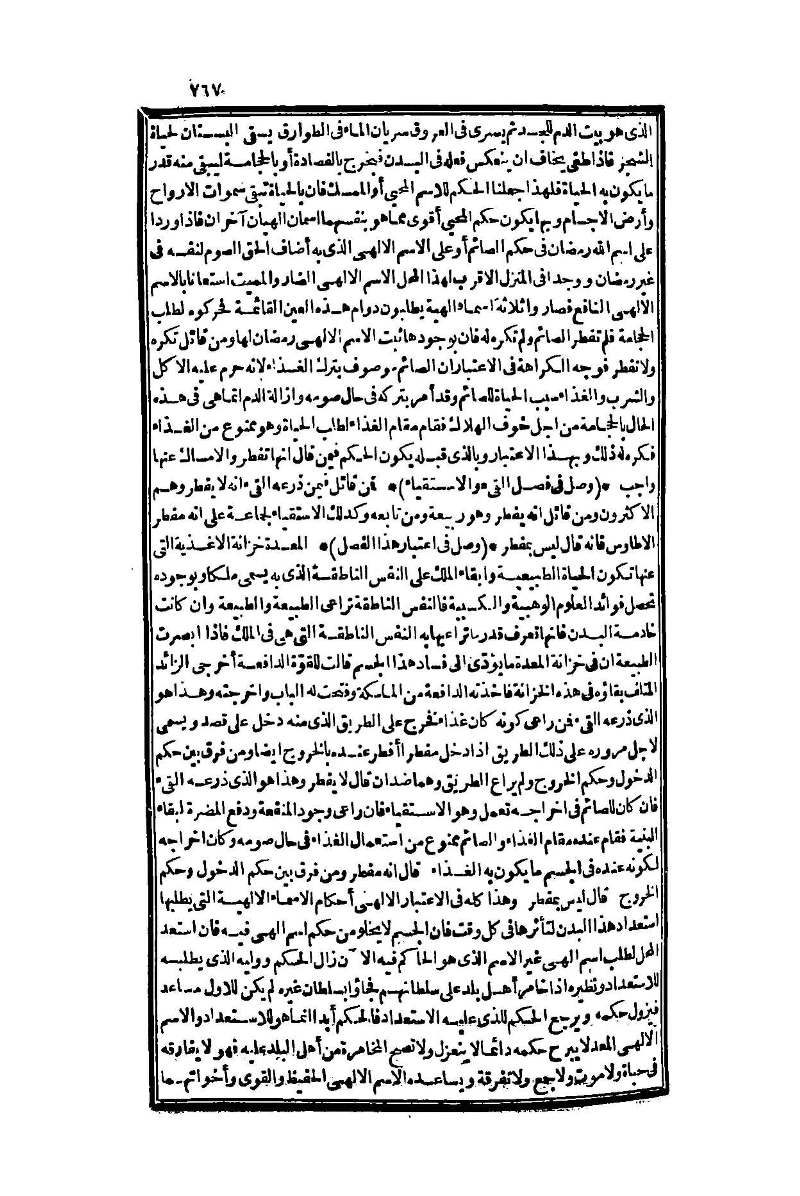 ٧٦٧
الذى هو بيت الدم للجسد ثم يسرى فى العروق سريان الماء فى الطوارق يسقى البستان لحياة
الشجر فاذا طغى يخاف ان ينعكس فعله فى البدن فيخرج بالفصادة أو بالحجامة ليبقى منه قدر
ما يكون به الحياة فلهذا جعلنا الحكم للاسم المحيى أو الممسك فان بالحياة تبقى سموات الارواح
وأرض الاجسام وبه يكون حكم المحيى أقوى مما هو بنفسه فهما اسمان الهيان آخران فاذا وردا
على اسم الله رمضان فى حكم الصائم أو على الاسم الالهى الذى به أضاف الحق الصوم لنفسه فى
غير رمضان ووجدا فى المنزل الاقرب لهذا المحل الاسم الالهى الضار والمميت استعانا بالاسم
الالهى النافع فصاروا ثلاثة اسماء الهية يطلبون دوام هذه العين القائمة فحركوه لطلب
الحجامة فلم تفطر الصائم ولم تكره له فان بوجودها ثبت الاسم الالهى رمضان لها ومن قائل تكره
ولا تفطر فوجه الكراهة فى الاعتبار ان الصائم موصوف بترك الغذاء لانه حرم عليه الاكل
والشرب والغذاء سبب الحياة للصائم وقد أمر بتركه فى حال صومه وازالة الدم انما هى فى هذه
الحال بالحجامة من اجل خوف الهلاك فقام مقام الغذاء لطلب الحياة وهو ممنوع من الغذاء
فكره له ذلك وبهذا الاعتبار وبالذى قبله يكون الحكم فيمن قال انها تفطر والامساك عنها
واجب *(وصل فى فصل القىء والاستقياء)* فمن قائل فيمن ذرعه القىء انه لا يفطر وهم
الاكثرون ومن قائل انه يفطر وهو ربيعة ومن تابعه وكذلك الاستقياء الجماعة على انه مفطر
الا طاوس فانه قال ليس بمفطر *(وصل فى اعتبار هذا الفصل)* المعدة خزانة الاغذية التى
عنها تكون الحياة الطبيعية وابقاء الملك على النفس الناطقة الذى به يسمى ملكا وبوجوده
تحصل فوائد العلوم الوهبية والكسبية فالنفس الناطقة تراعى الطبيعة والطبيعة وان كانت
خادمة البدن فانها تعرف قدر ما تراعيها به النفس الناطقة التى هى فى الملك فاذا ابصرت
الطبيعة ان فى خزانة المعدة ما يؤدى الى فساد هذا الجسم قالت للقوة الدافعة أخرجى الزائد
المتلف بقاؤه فى هذه الخزانة فاخذته الدافعة من الماسكة وفتحت له الباب واخرجته وهذا هو
الذى ذرعه القىء فمن راعى كونه كان غذاء فخرج على الطريق الذى منه دخل على قصد ويسمى
لاجل مروره على ذلك الطريق اذا دخل مفطرا أفطر عنده بالخروج ايضا ومن فرق بين حكم
الدخول وحكم الخروج ولم يراع الطريق وهما ضدان قال لا يفطر وهذا هو الذى ذرعه القىء
فان كان للصائم فى اخراجه تعمل وهو الاستقياء فان راعى وجود المنفعة ودفع المضرة لبقاء
البنية فقام عنده مقام الغذاء والصائم ممنوع من استعمال الغذاء فى حال صومه وكان اخراجه
لكونه عنده فى الجسم ما يكون به الغذاء قال انه مفطر ومن فرق بين حكم الدخول وحكم
الخروج قال ليس بمفطر وهذا كله فى الاعتبار الالهى أحكام الاسماء الالهية التى يطلبها
استعداد هذا البدن لتأثرها فى كل وقت فان الجسم لا يخلو من حكم اسم الهى فيه فان استعد
المحل لطلب اسم الهى غير الاسم الذى هو الحاكم فيه الآن زال الحكم ووليه الذى يطلبه
للاستعداد ونظيره اذا خامر أهل بلد على سلطانهم فجاؤا بسلطان غيره لم يكن للاول مساعد
فيزول حكمه ويرجع الحكم للذى عليه الاستعداد فالحكم أبدا انما هو للاستعداد والاسم
الالهى المعد لا يبرح حكمه دائما لا ينعزل ولا تصح المخامرة من أهل البلد عليه فهو لا يفارقه
فى حياة ولا موت ولا جمع ولا تفرقة ويساعده الاسم الالهى الحفيظ والقوى وأخواتهما